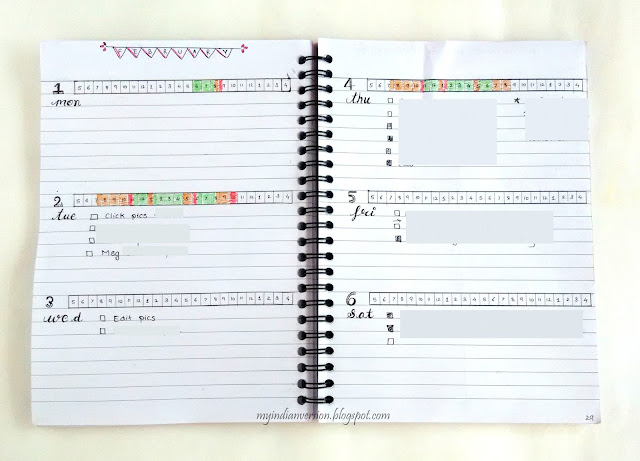 FEBRUARY
1 5 6 7 8 9 10 11 12 1 2 3 4 5 6 7 8 9 10 11 12 1 2 3 4
mon
2 5 6 7 8 9 10 11 12 1 2 3 4 5 6 7 8 9 10 11 12 1 2 3 4
tue
Click pics
Meg
3 5 6 7 8 9 10 11 12 1 2 3 4 5 6 7 8 9 10 11 12 1 2 3 4
wed
Edit pics
4 5 6 7 8 9 10 11 12 1 2 3 4 5 6 7 8 9 10 11 12 1 2 3 4
thu
5 5 6 7 8 9 10 11 12 1 2 3 4 5 6 7 8 9 10 11 12 1 2 3 4
fri
6 5 6 7 8 9 10 11 12 1 2 3 4 5 6 7 8 9 10 11 12 1 2 3 4
sat
29
myindianversion.blogspot.com